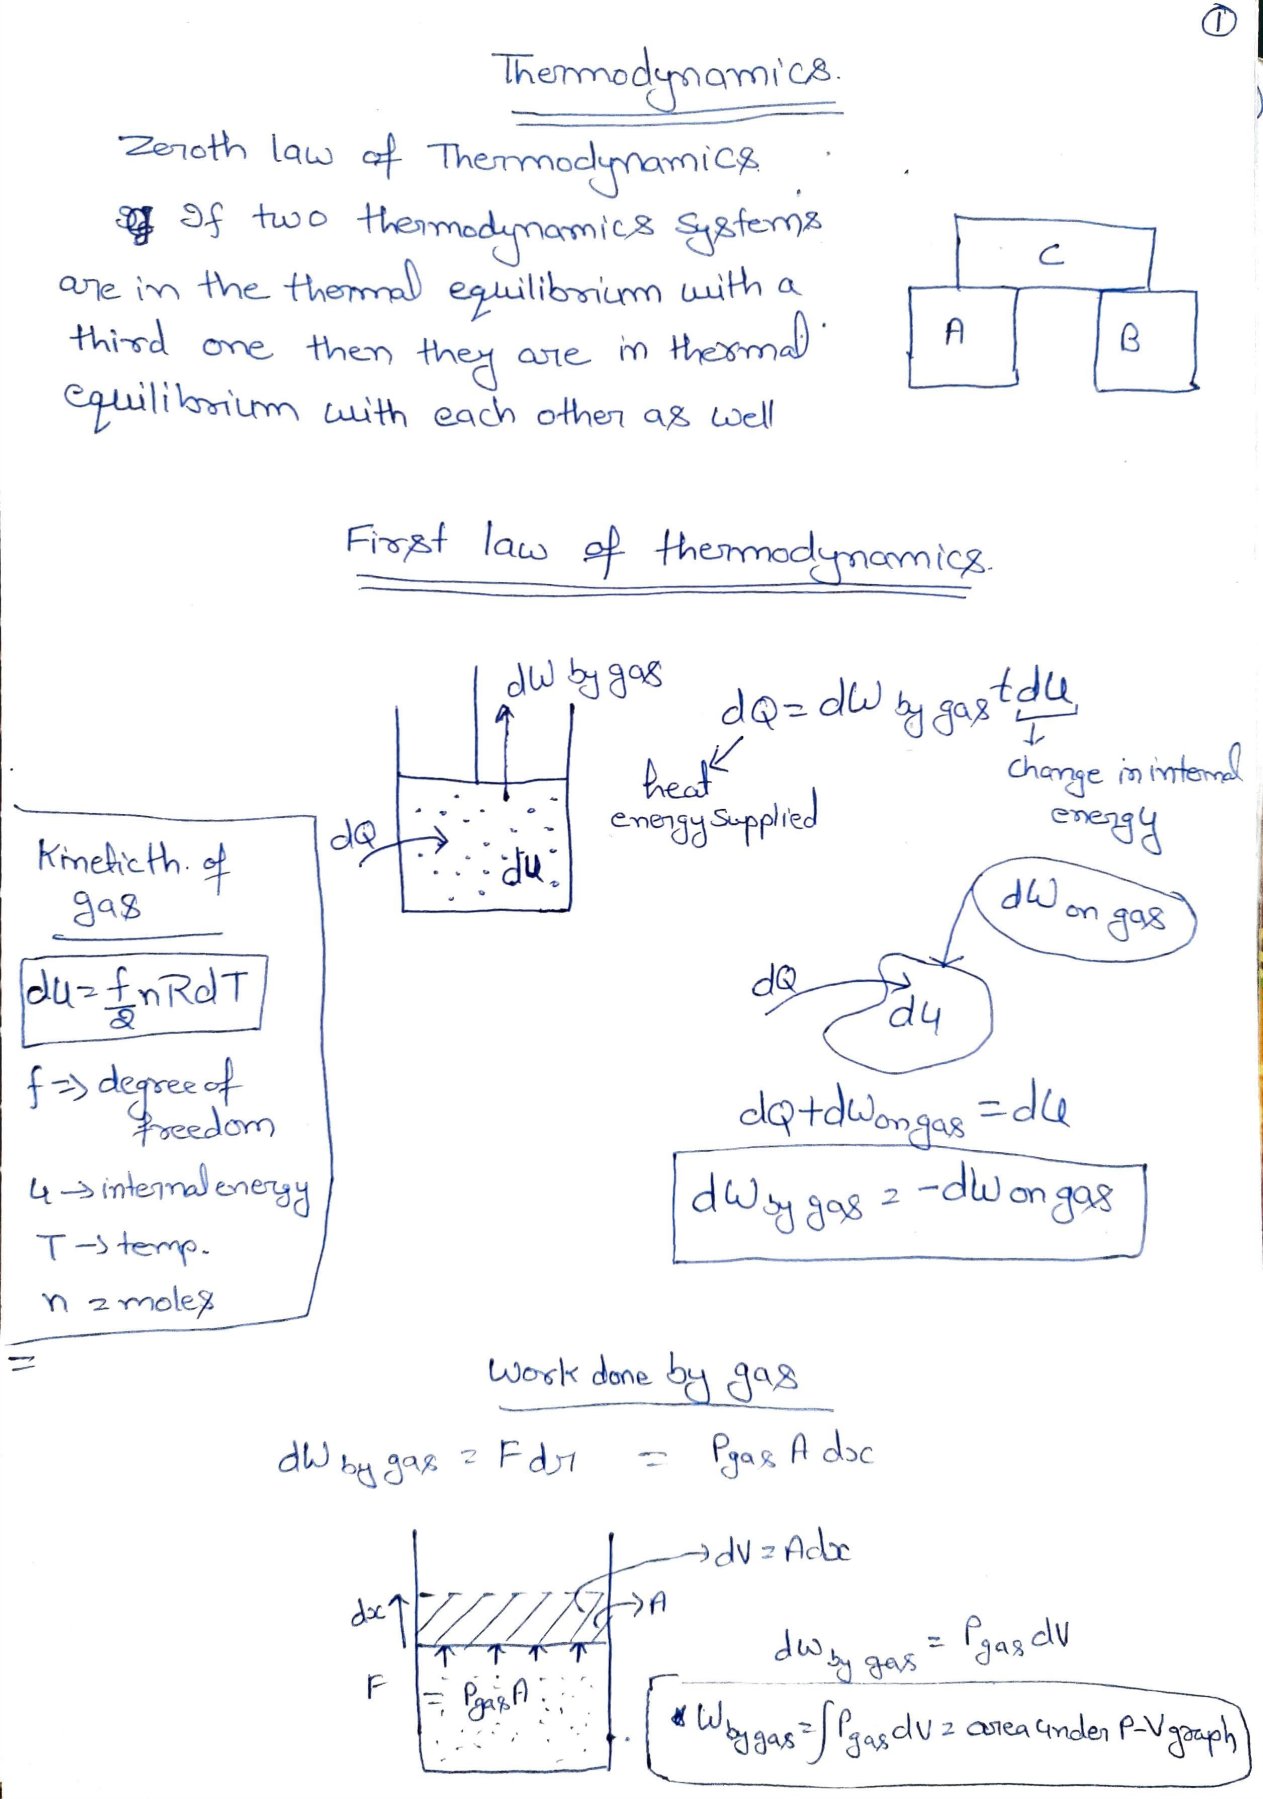 1
Thermodynamics.
Zeroth law of Thermodynamics
If two thermodynamics systems
are in the thermal equilibrium with a
third one then they are in thermal
equilibrium with each other as well
C
A
B
First law of thermodynamics.
dW by gas
dQ = dW by gas + du
heat
energy supplied
change in internal
energy
dQ
du
Kinetic th. of
gas
du = f/2 nRdT
f => degree of
freedom
u -> internal energy
T -> temp.
n = moles
=
dW on gas
dQ
du
dQ + dW on gas = du
dW by gas = -dW on gas
Work done by gas
dW by gas = F dr = Pgas A dx
dV = Adx
dx
A
F = Pgas A
dW by gas = Pgas dV
W by gas = ∫Pgas dV = area under P-V graph